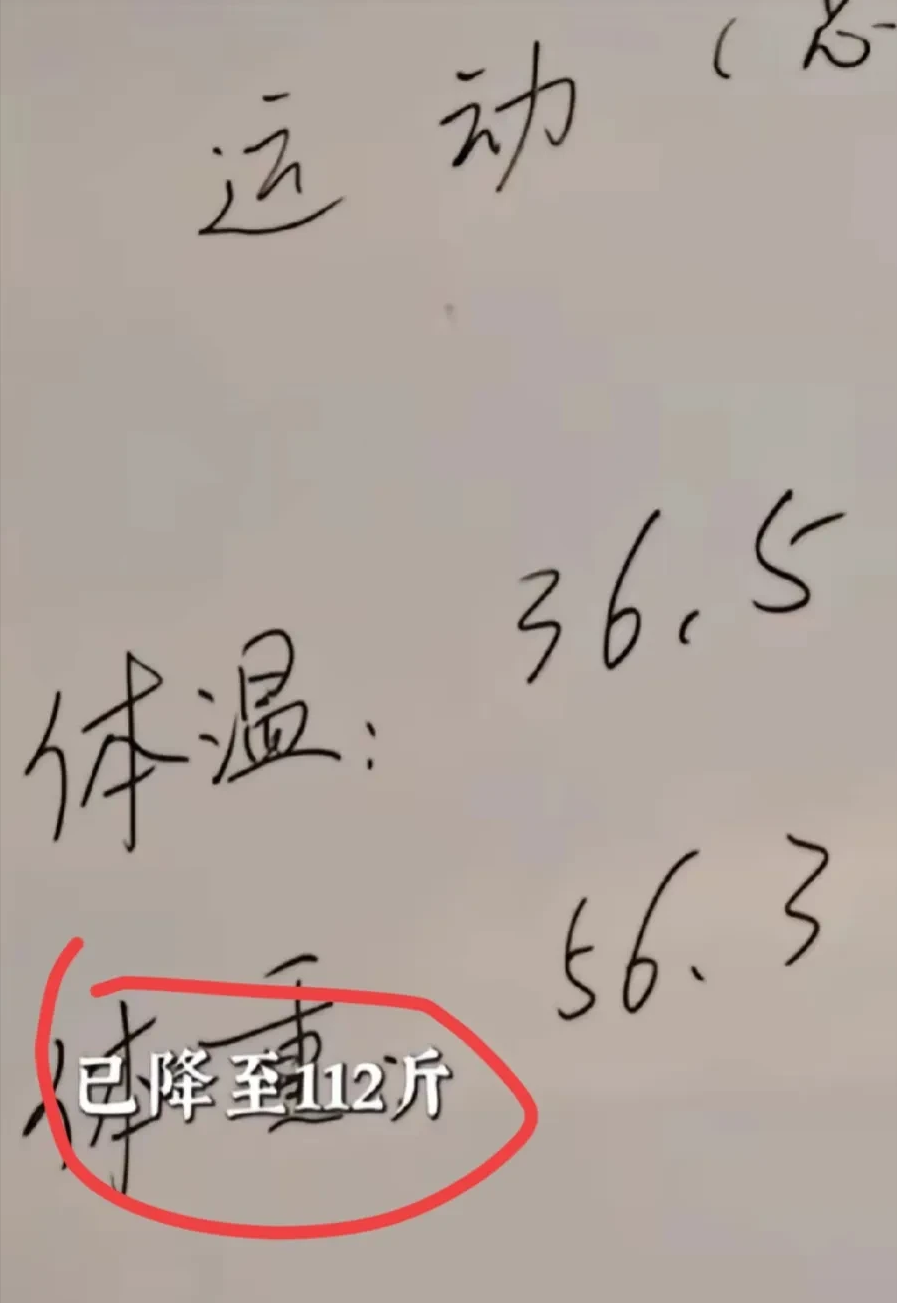 运动（总
体温： 36.5
体重 56.3
已降至112斤